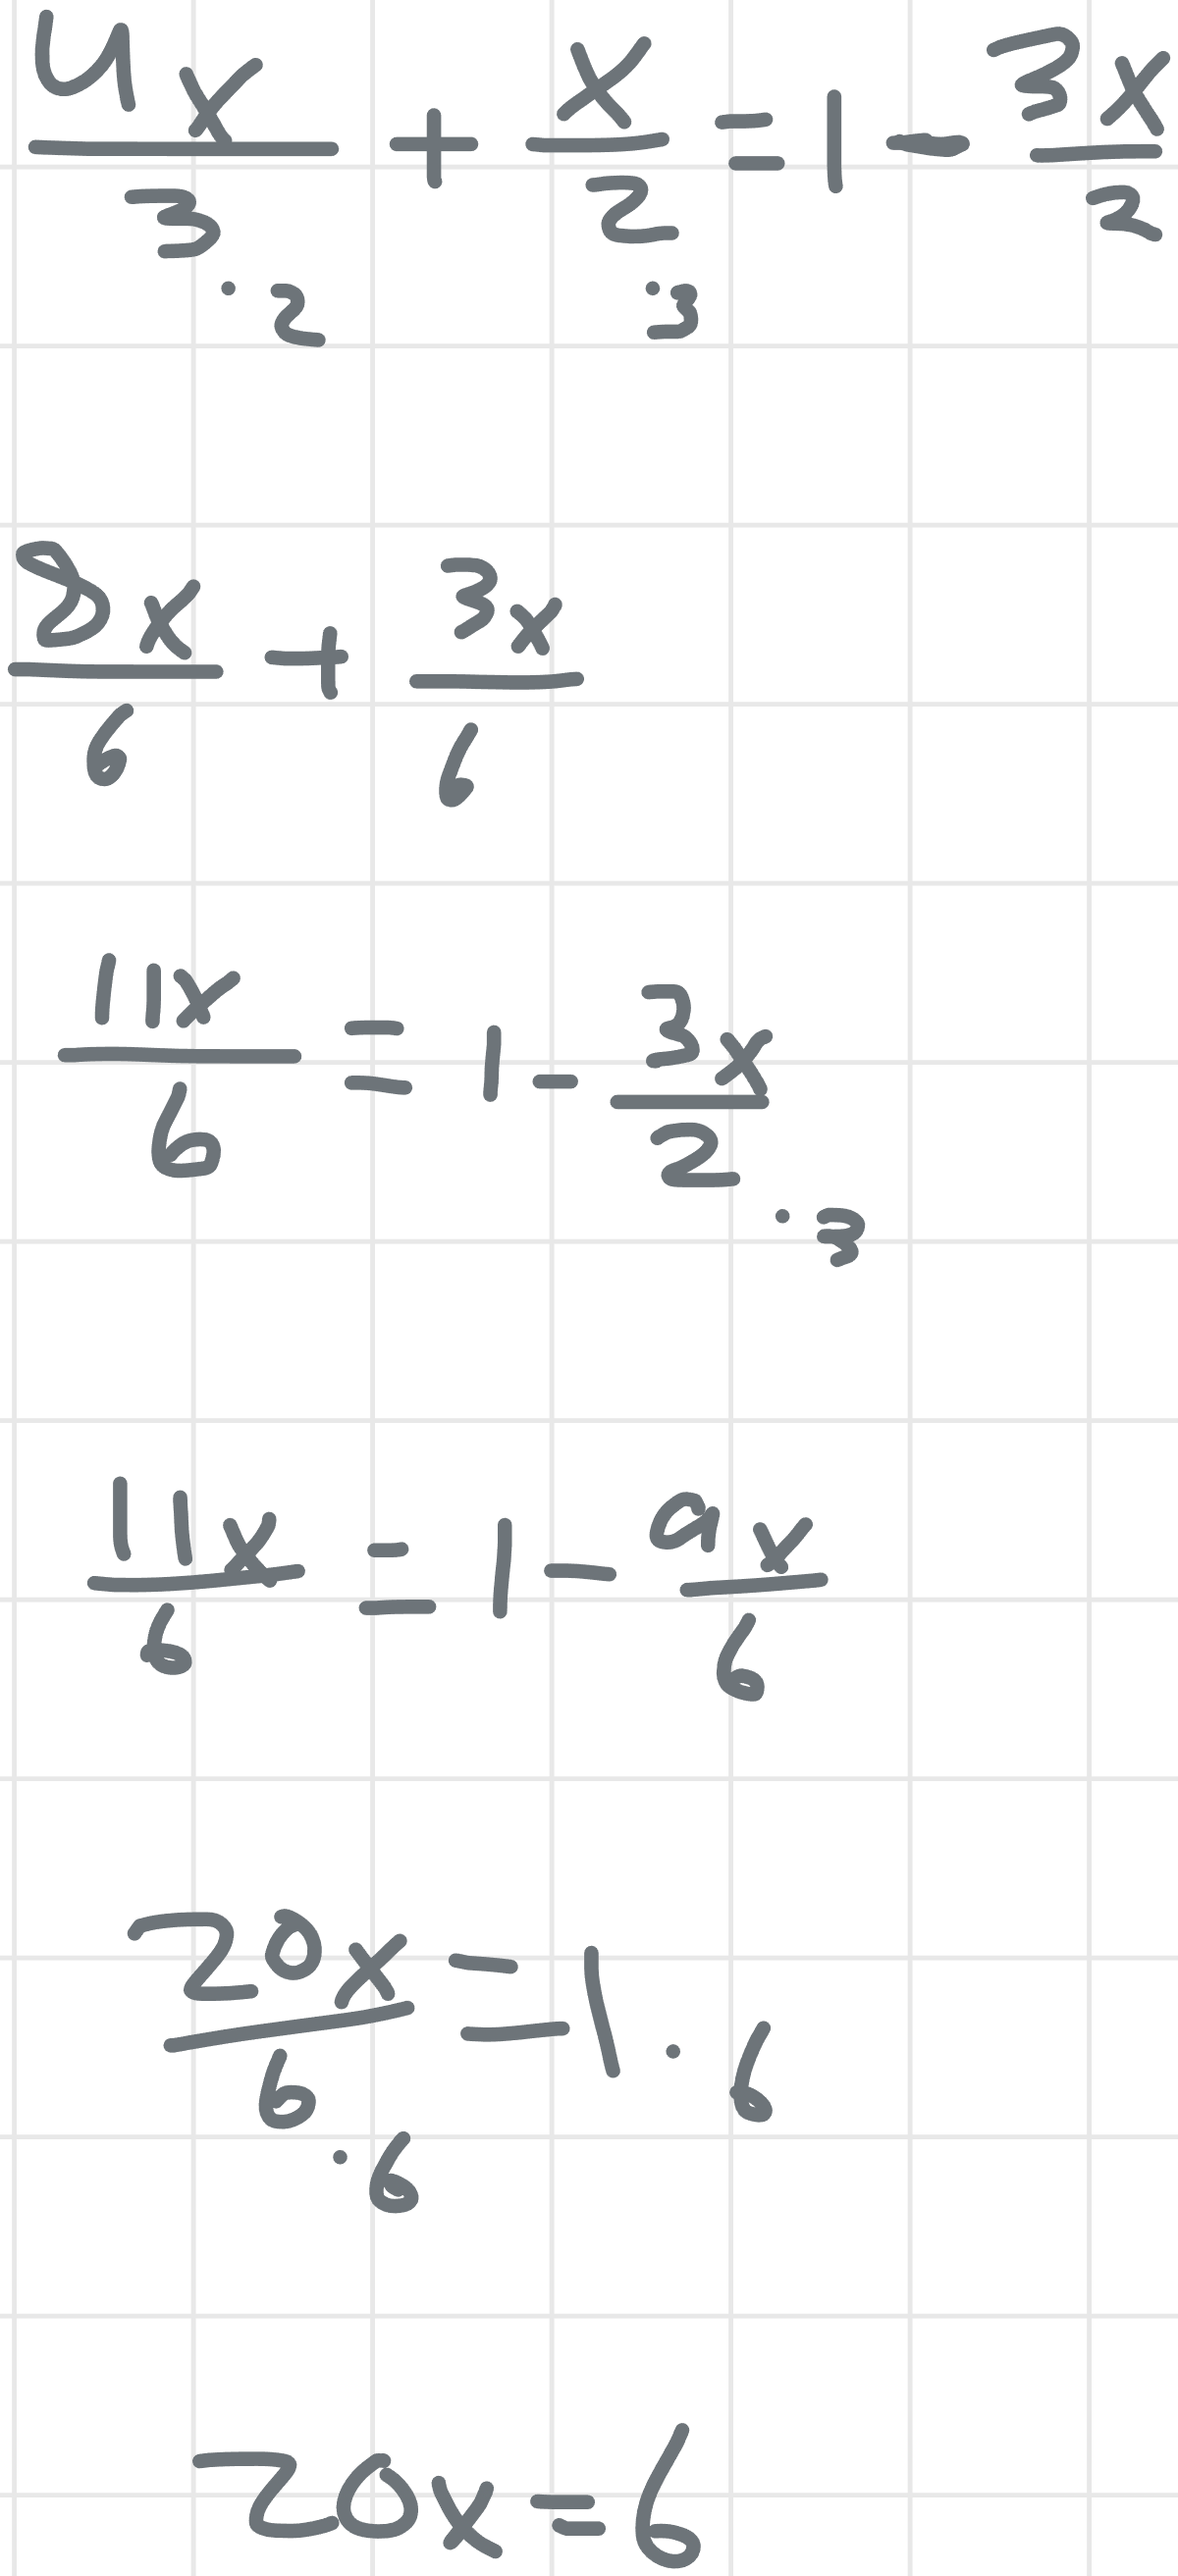 4x/3 + x/2 = 1 - 3x/2
·2 ·3
8x/6 + 3x/6
11x/6 = 1 - 3x/2
·3
11x/6 = 1 - 9x/6
20x/6 = 1 · 6
·6
20x = 6